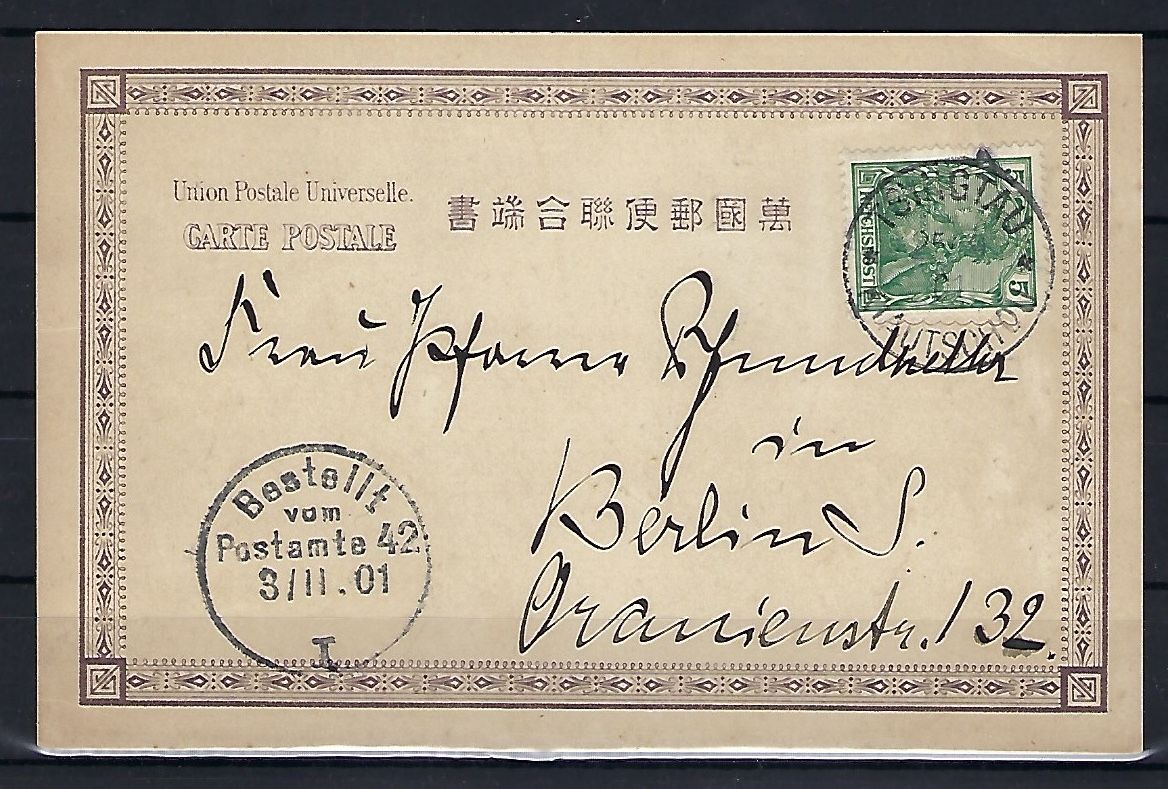 Union Postale Universelle.
CARTE POSTALE
書端合聯便郵國萬
REICHSPOST
5
5
TSINGTAU
KIAUTSCHOU
Frau Pfarrer
in
Berlin S.
Oranienstr. 132.
Bestellt
vom
Postamte 42
3/11.01
I